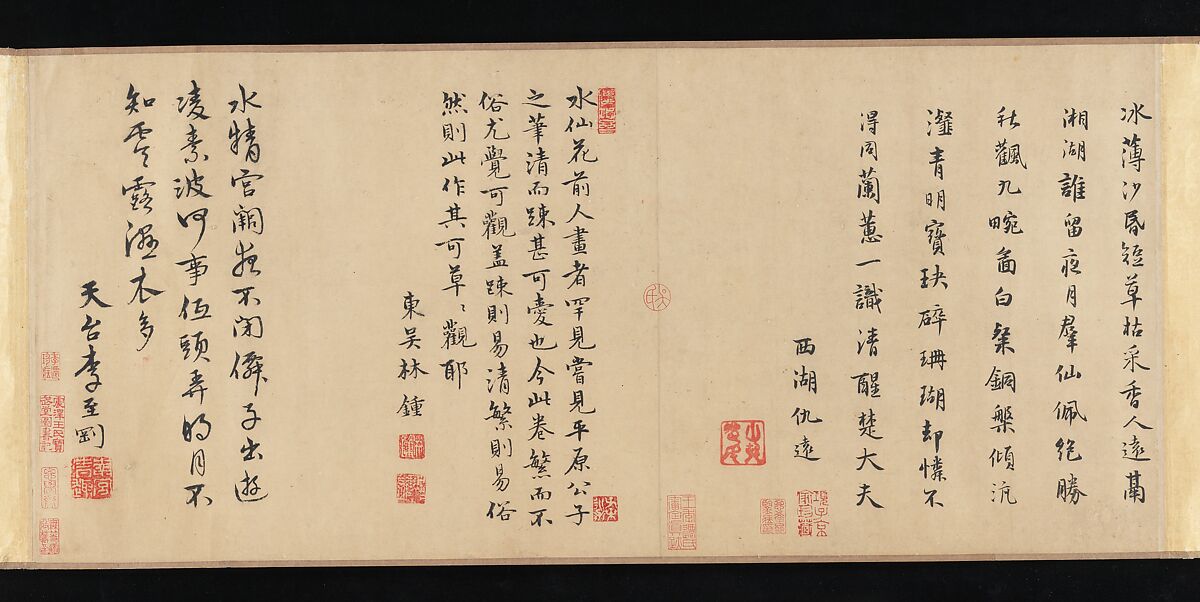 冰薄沙昏短草枯采香人遠隔
湘湖誰留夜月羣仙佩絶勝
秋飄九畹圖白粲銅槃傾沆
瀣青明寶玦碎珊瑚却憐不
得同蘭蕙一識清醒楚大夫
西湖仇遠
水仙花前人畫者罕見嘗見平原公子
之筆清而踈甚可愛也今此卷繁而不
俗尤覺可觀盖踈則易清繁則易俗
然則此作其可草〻觀耶
東吴林鍾
水精宫闕夜不閉僊子出遊
凌素波何事低頭弄明月不
知零露溼衣多
天台李至剛
項子京
家珍藏